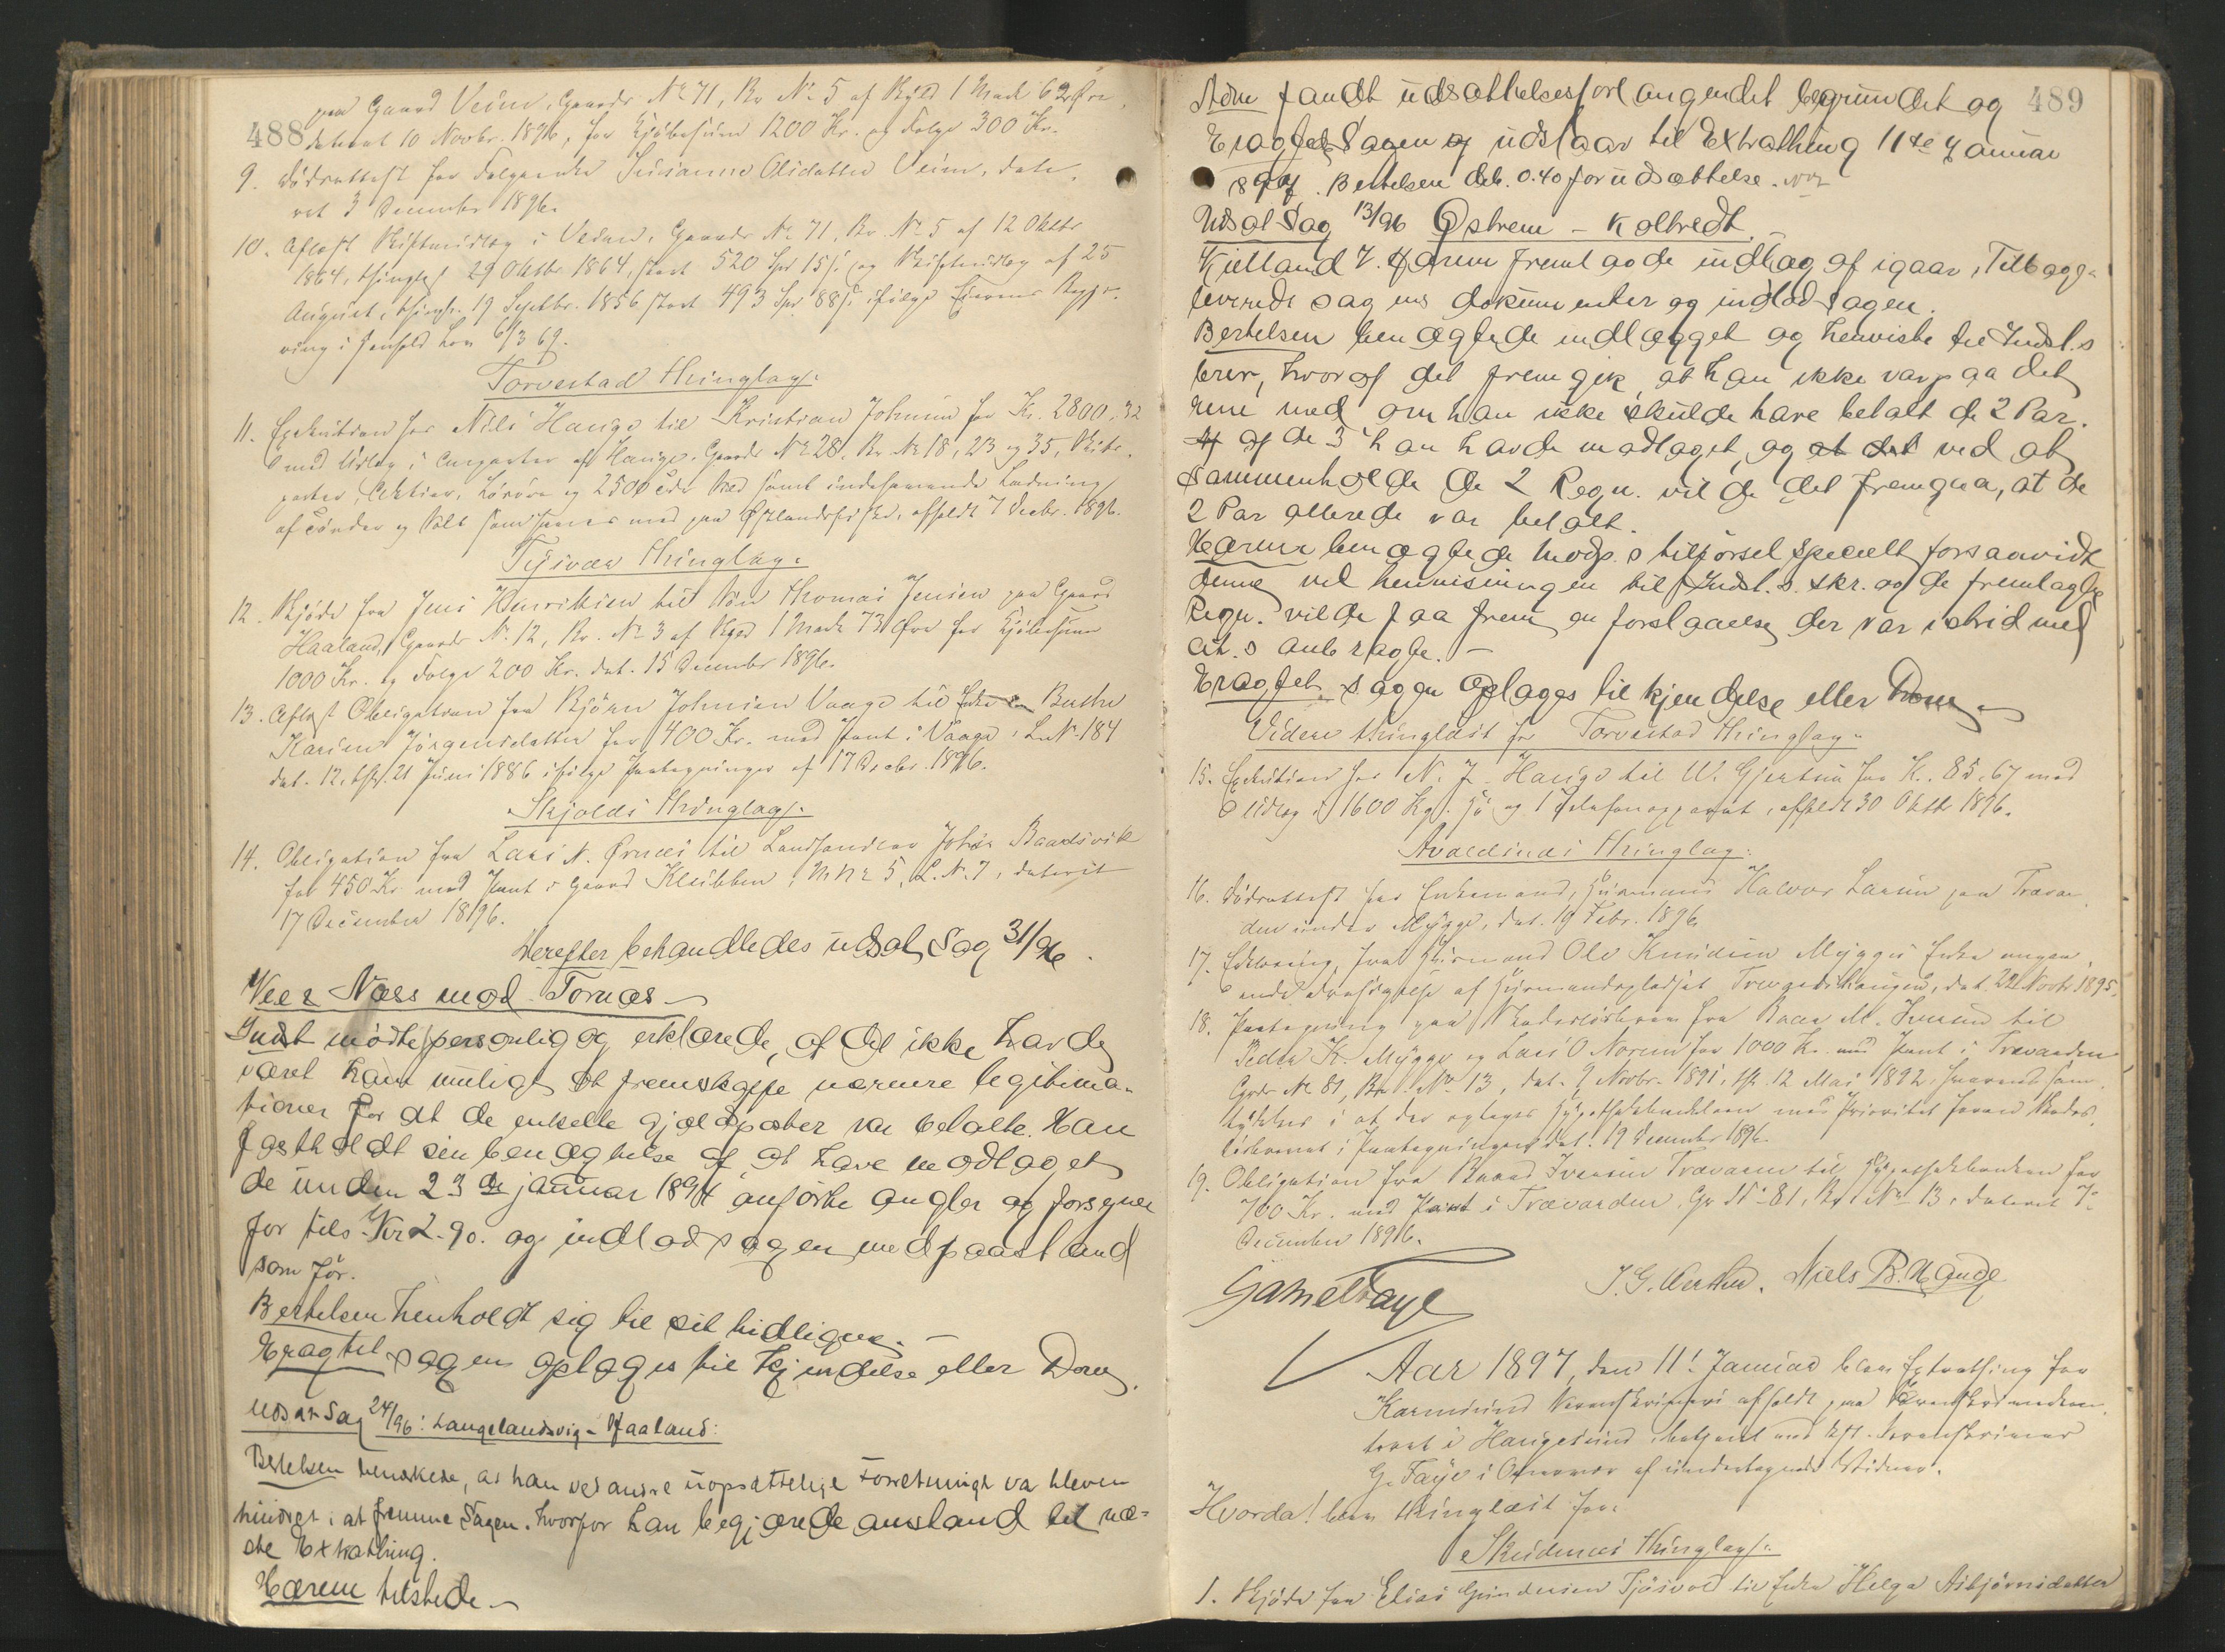 488
paa Gaard Veim, Gaards No 71, Br No 5 af Skyld 1 Mark 62 Øre,
dateret 10 Novbr. 1896, for Kjøbesum 1200 Kr. og Følge 300 Kr.
9. Dødsattest for Susanne Olsdatter Veim, date-
ret 3 December 1896.
10. Aflæst Skifteudlæg i Veim, Gaards No 71, Br. No 5 af 12 Oktbr
1864, thinglæst 29 Oktbr 1864, stort 520 Spd 15 s og Skifteudlæg af 25
August, thingl. 19 Septbr. 1856 stort 493 Spd 88 s ifølge
i Henhold Lov 6/3 69.
Torvestad Thinglag:
11. Exekution hos Nils Hauge til Kristian Johnsen for Kr. 2800.32
med Udlæg i af Hauge, Gaards No 28, Br No 18, 23 og 35,
Aktier, og 2500 samt Ladning
af Tønder og Salt paa afholdt 7 Decbr. 1896.
Tysvær Thinglag:
12. Skjøde fra Jens Henriksen til Søn Thomas Jensen paa Gaard
Haaland, Gaards No 12, Br. No 3 af Skyld 1 Mark 73 Øre for Kjøbesum
1000 Kr. og Følge 200 Kr. dat. 15 December 1896.
13. Aflæst Obligation fra Bjørn Johnsen Vaage til Enke Berthe
Karine Jørgensdatter for 400 Kr. med Pant i Vaage, L No 184
dat. 12, thl. 21 Juni 1886 ifølge Paategninger af 17 Decbr. 1896.
Skjolds Thinglag:
14. Obligation fra Lars N. Ørnes til Landhandler Johan Baadsvik
for 450 Kr med Pant i Gaard Kleibben, M No 5, L. No 7, dateret
17 December 1896.
Derefter behandledes udsat Sag 31/96.
Næss mod Tornæs
Indst mødte personlig og erklærede, at det ikke havde
været ham muligt at fremskaffe nærmere legitima-
tioner for at de enkelte gjældposter var betalte. Han
fastholdt sin benægtelse af at have modtaget
de under 23de januar 1894 anførte angler og forsyner
for tils. Kr 2.90. og indlod sagen med paastand
som før.
Bertelsen henholdt sig til sit tidligere. —
Eragtet sagen optages til Kjendelse eller Dom.
Udsat Sag 24/96: Langelandsvig - Haaland:
Bertelsen bemærkede, at han ved andre uopsættelige Forretninger var bleven
hindret i at fremme Sagen. hvorfor han begjærede anstand til næ-
ste Extrathing.
Hærem tilstede. —
489
Adm fandt udsættelsesforlangendet begrundet og
Eragtet Sagen udstaar til Extrathing 11te Januar
1897. Bertelsen deb. 0.40 for udsættelse.
Udsat Sag 13/96 Østrem - Koltvedt. —
Kielland v. Hærem fremlagde indlæg af igaar, Tilbage-
leverede sagens dokumenter og indlod sagen.
Bertelsen benægtede indlægget og henviste til Indst.s
brev, hvoraf det fremgik at han ikke var paa det
rene med om han ikke skulde have betalt de 2 Par.
af de 3 han havde modtaget, og at det ved at
sammenholde de 2 Regn. vilde det fremgaa, at de
2 Par allerede var betalt.
Hærem benægtede Modp.s tilførsel specielt forsaavidt
denne ved henvisningen til Indst.s skr. og de fremlagte
Regn. vilde faa frem en forstaaelse der var i strid med
Cit.s anbragte. —
Eragtet sagen optages til kjendelse eller Dom
Videre thinglæst for Torvestad Thinglag:
15. Exekution hos N. J. Hauge til W. Gjertsen for Kr. 85,67 med
Udlæg i 1600 Kg. Hø og 1 Telefonapparat, afholdt 30 Oktbr 1896.
Avaldsnæs Thinglag:
16. Dødsattest for Enkemand, Husmand Halvor Larsen paa Trævar-
den under Mygge, dat. 19 Febr. 1896.
17. Erklæring fra Husmand Ole Knudsen Mygges Enke angaa-
ende af Husmandspladset dat. 22 Novbr 1895.
18. Paategning paa Skadesløsbrev fra Baar M. Iversen til
Peder Kr. Mygge og Lars O Norem for 1000 Kr. med Pant i Trævarden
Grds No 81, Br No 13, dat. 9 Novbr. 1891, thl. 12 Mai 1892, hvorved sam-
tykkes i at der optages Hypothekbanklaan med Prioritet foran Skades-
løsbrevet; Paategningen dat. 19 December 1896.
19. Obligation fra Baard Iversen Trævaren til Hypothekbanken for
700 Kr. med Pant i Trævarden, Gr No 81, Br No 13, dateret 7
December 1896.
Gamelfaye
J. G. Niels B. Hauge
Aar 1897, den 11! Januar blev Extrathing for
Karmsund Sorenskriveri afholdt paa Sorenskriverkon-
toret i Haugesund, betjent med kst. Sorenskriver
G. Faye i Overvær af undertegnede Vidner.
Hvorda! blev thinglæst for:
Skudenæs Thinglag:
1. Skjøde fra Elias Gundersen Tjøsvold til Enke Helga Asbjørnsdatter